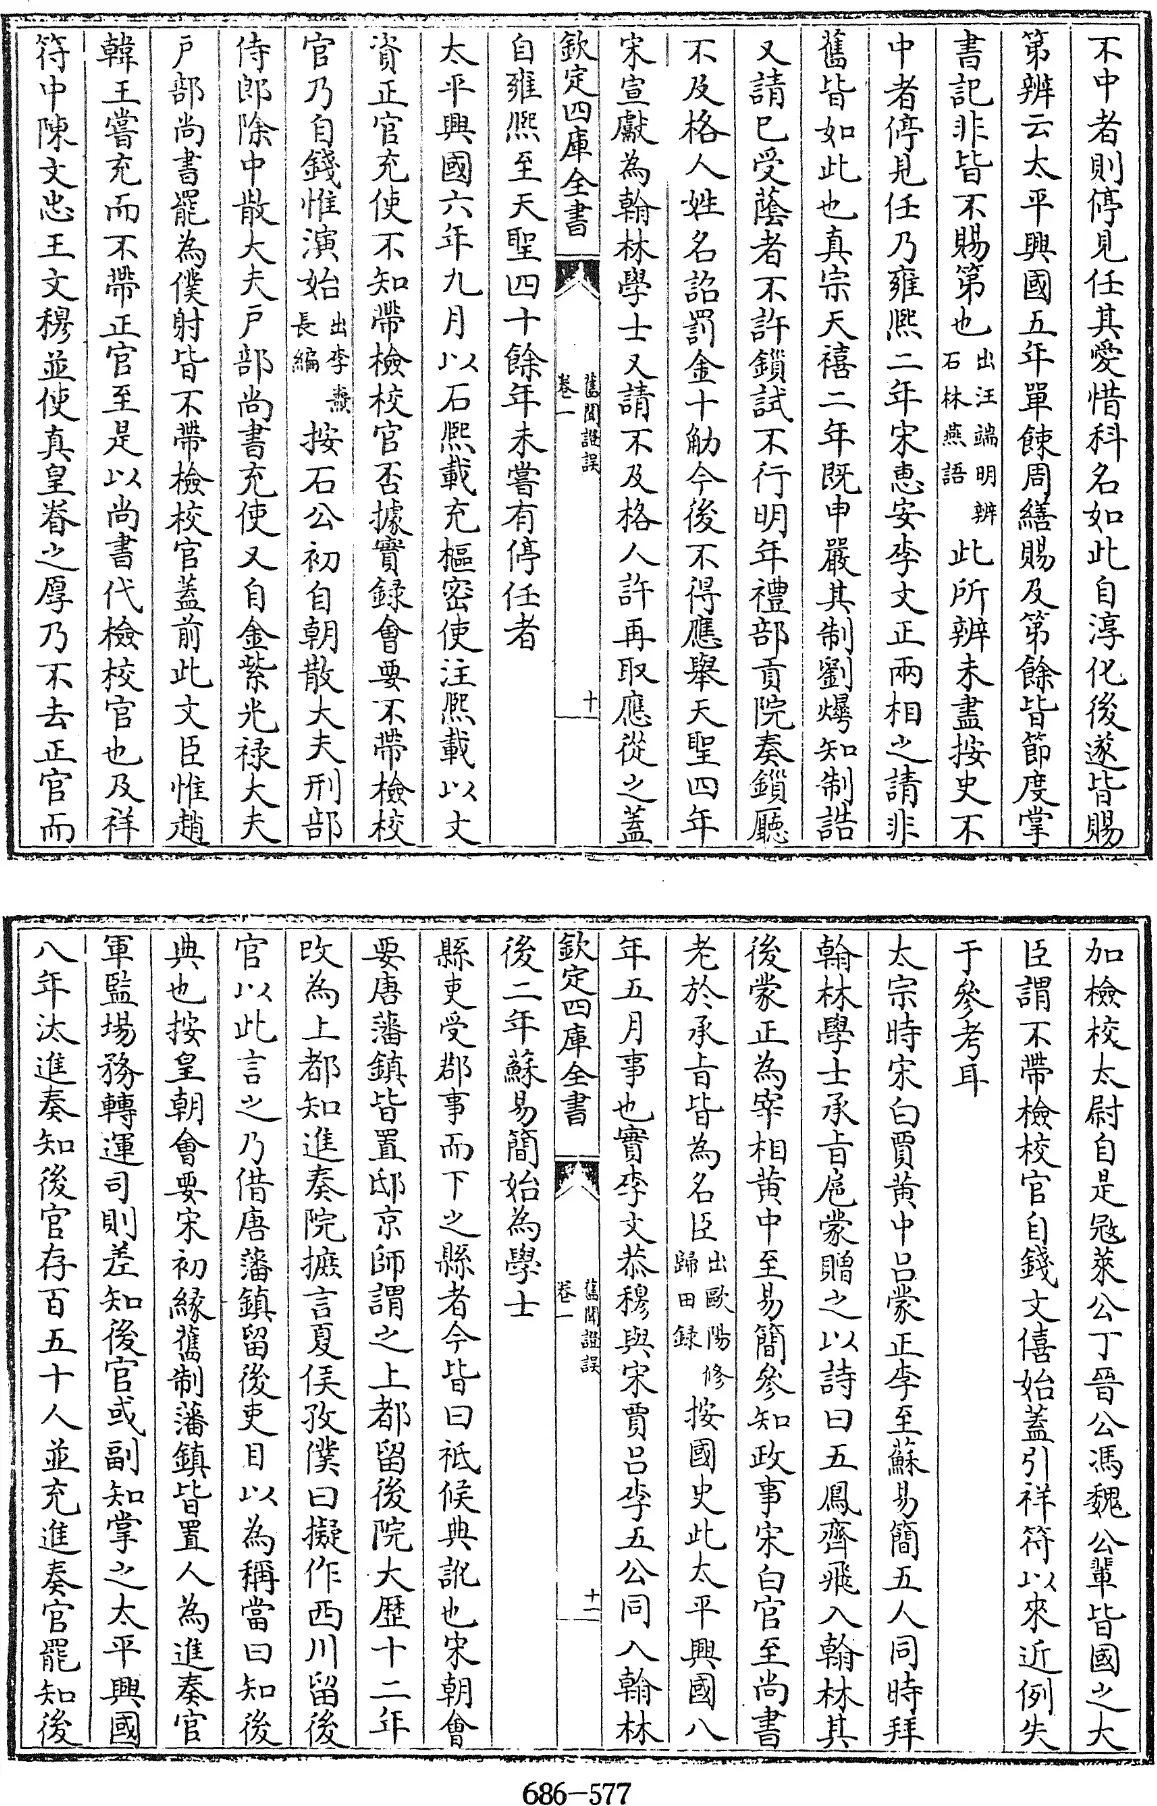 不中者則停見任其愛惜科名如此自淳化後遂皆賜
第辨云太平興國五年單餗周繕賜及第餘皆節度掌
書記非皆不賜第也出汪端明辨石林燕語此所辨未盡按史不
中者停見任乃雍熙二年宋惠安李文正兩相之請非
舊皆如此也真宗天禧二年既申嚴其制劉爗知制誥
又請已受蔭者不許鎖試不行明年禮部貢院奏鎖廳
不及格人姓名詔罰金十觔今後不得應舉天聖四年
宋宣獻為翰林學士又請不及格人許再取應從之蓋
欽定四庫全書
舊聞證誤
卷一
十
自雍熙至天聖四十餘年未嘗有停任者
太平興國六年九月以石熙載充樞密使注熙載以文
資正官充使不知帶檢校官否據實録會要不帶檢校
官乃自錢惟演始出李燾長編按石公初自朝散大夫刑部
侍郎除中散大夫户部尚書充使又自金紫光禄大夫
户部尚書罷為僕射皆不帶檢校官蓋前此文臣惟趙
韓王嘗充而不帶正官至是以尚書代檢校官也及祥
符中陳文忠王文穆並使真皇眷之厚乃不去正官而
加檢校太尉自是冦萊公丁晉公馮魏公輩皆國之大
臣謂不帶檢校官自錢文僖始蓋引祥符以來近例失
于參考耳
太宗時宋白賈黄中吕蒙正李至蘇易簡五人同時拜
翰林學士承旨扈蒙贈之以詩曰五鳳齊飛入翰林其
後蒙正為宰相黄中至易簡參知政事宋白官至尚書
老於承旨皆為名臣出歐陽修歸田録按國史此太平興國八
年五月事也實李文恭穆與宋賈吕李五公同入翰林
欽定四庫全書
舊聞證誤
卷一
十一
後二年蘇易簡始為學士
縣吏受郡事而下之縣者今皆曰祗候典訛也宋朝會
要唐藩鎮皆置邸京師謂之上都留後院大歷十二年
改為上都知進奏院摭言夏侯孜僕曰擬作西川留後
官以此言之乃借唐藩鎮留後吏目以為稱當曰知後
典也按皇朝會要宋初緣舊制藩鎮皆置人為進奏官
軍監場務轉運司則差知後官或副知掌之太平興國
八年汰進奏知後官存百五十人並充進奏官罷知後
686-577